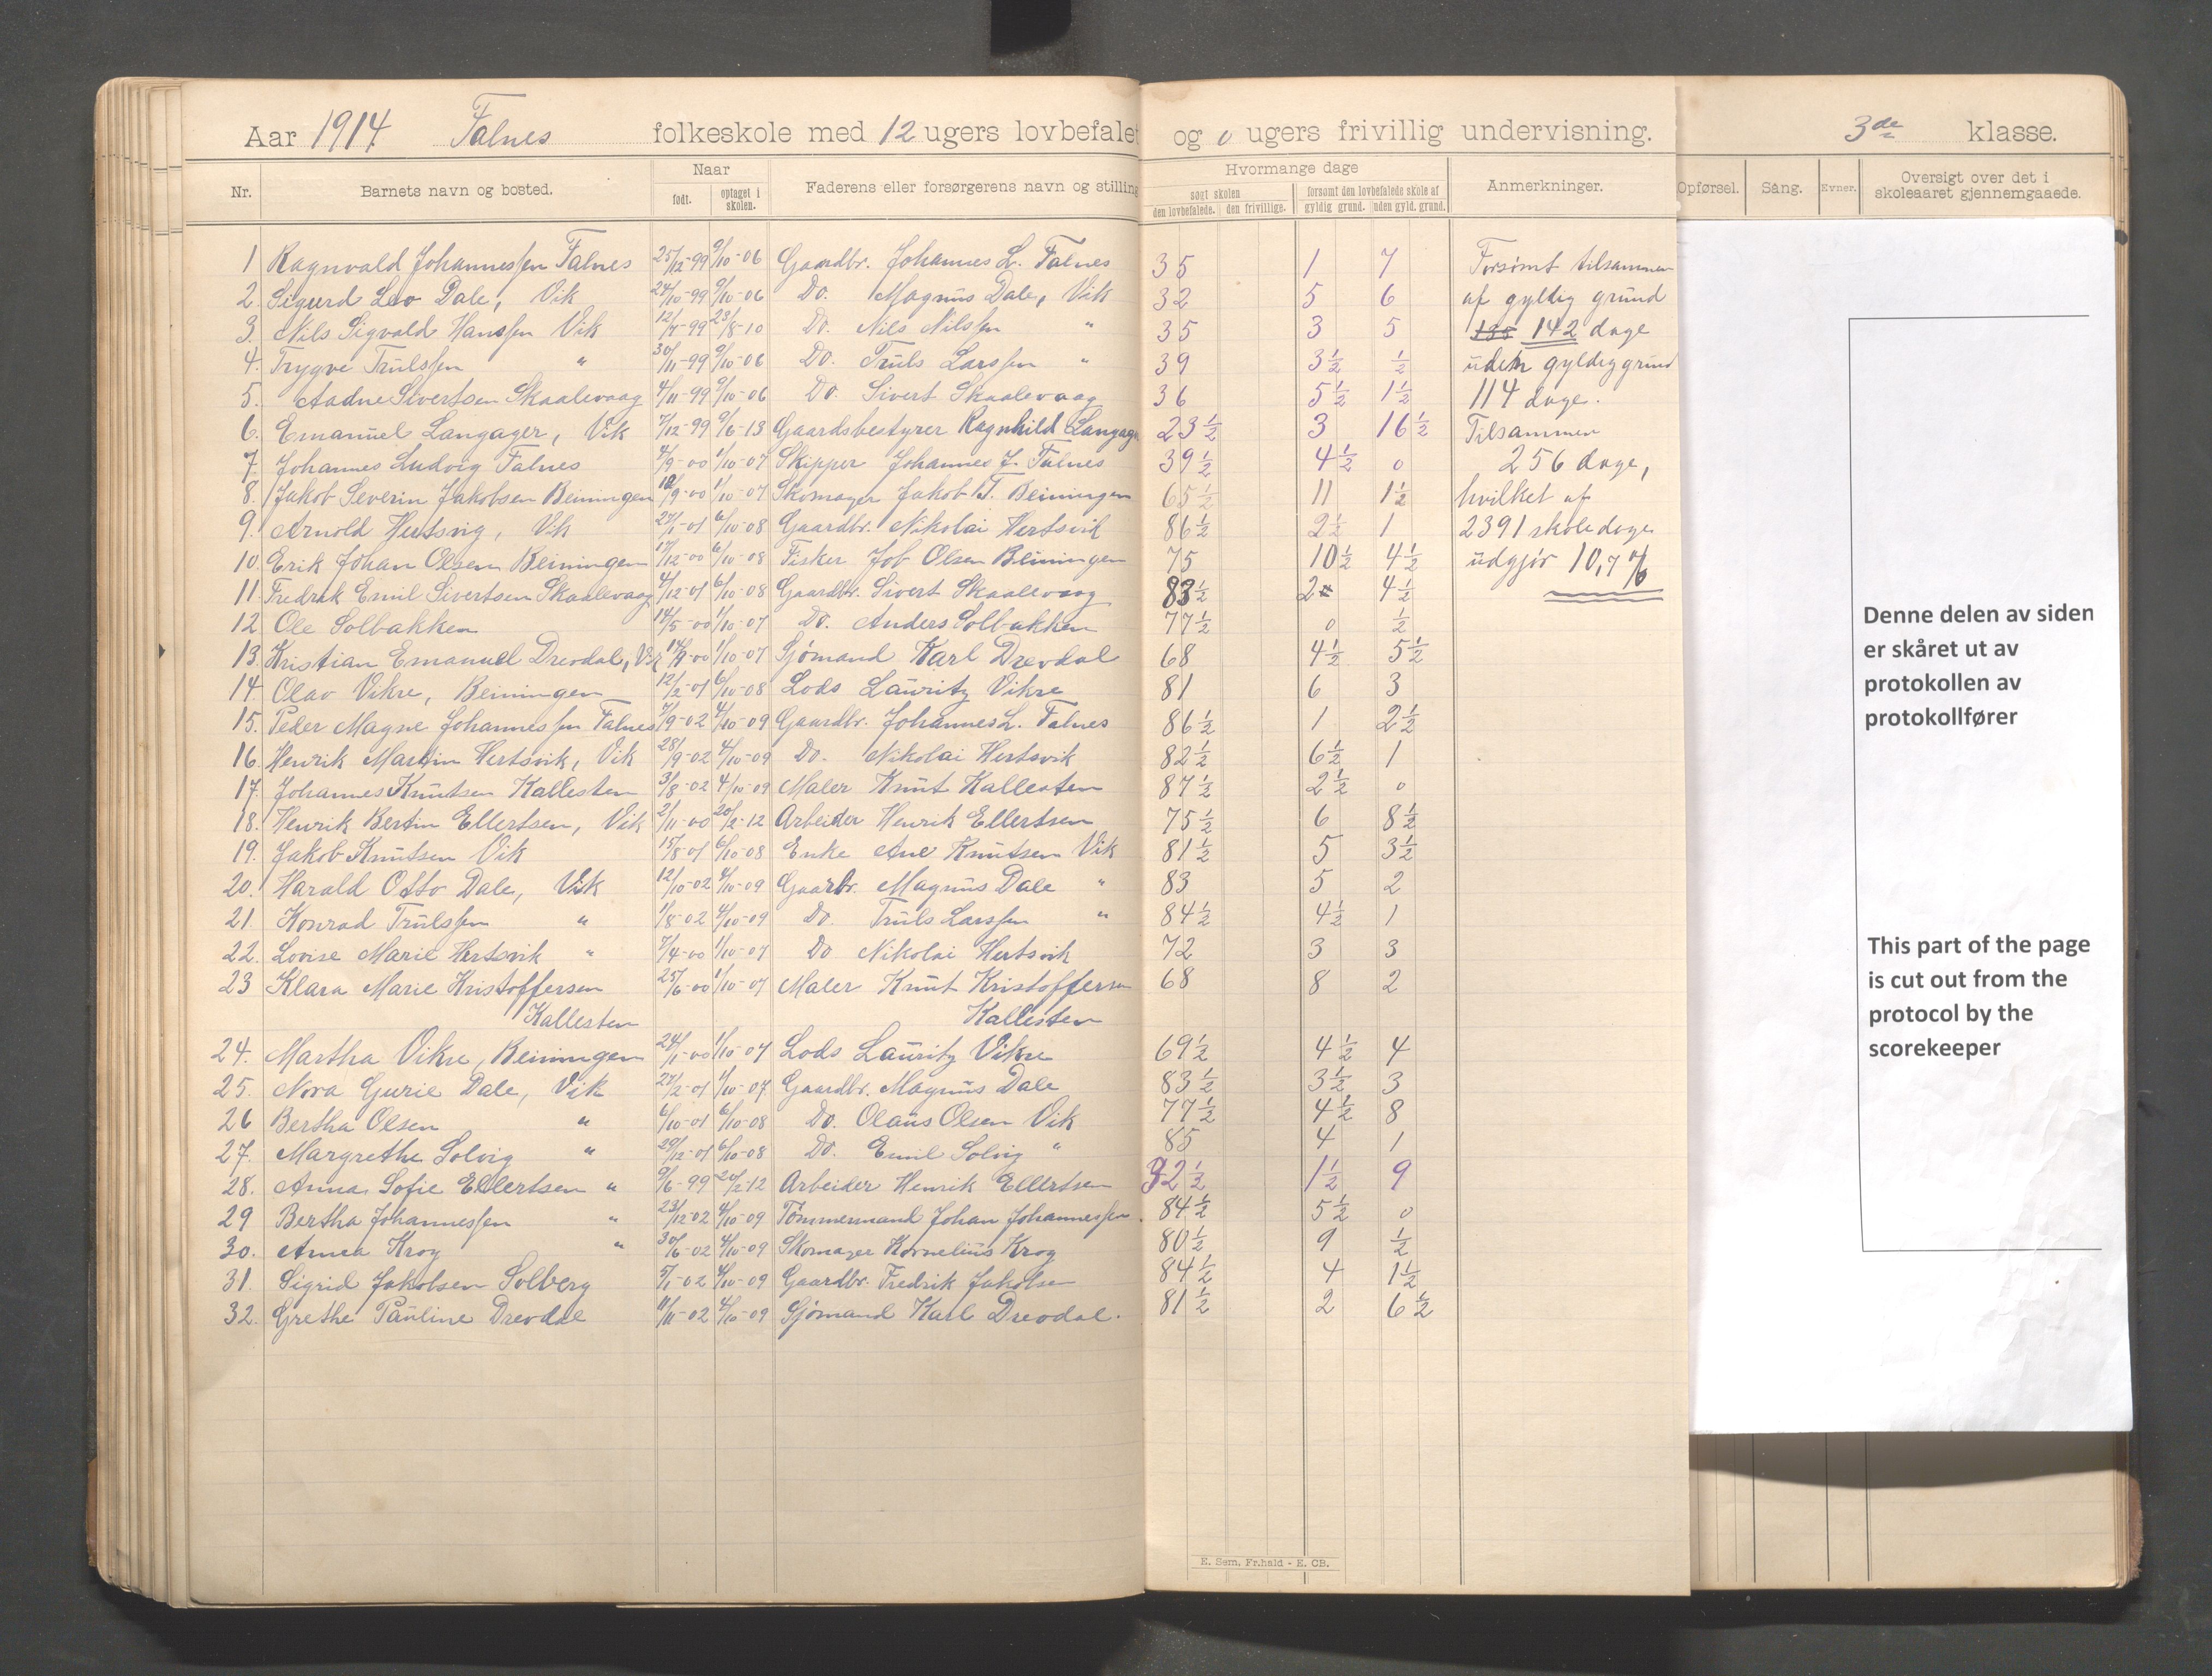 Aar 1914 Falnes folkeskole med 12 ugers lovbefalet og 0 ugers frivillig undervisning. 3de klasse.
Nr. Barnets navn og bosted. Naar født. optaget i skolen. Faderens eller forsørgerens navn og stilling Hvormange dage søgt skolen den lovbefalede. den frivillige. forsømt den lovbefalede skole af gyldig grund. uden gyld. grund. Anmerkninger. Opførsel. Sang. Evner. Oversigt over det i skoleaaret gjennemgaaede.
1 Ragnvald Johannessen Falnes 25/12-99 9/10-06 Gaardbr. Johannes L. Falnes 35 1 7 Forsømt tilsammen
2. Sigurd Leo Dale, Vik 24/10-99 9/10-06 Do. Magnus Dale, Vik 32 5 6 af gyldig grund
3. Nils Sigvald Hanssen Vik 12/7-99 23/8-10 Do. Nils Nilssen " 35 3 5 135 142 dage
4. Trygve Trulssen " 30/11-99 9/10-06 Do. Truls Larssen " 39 3½ ½ uden gyldig grund
5. Aadne Sivertsen Skaalevaag 4/11-99 9/10-06 Do. Sivert Skaalevaag 36 5½ 1½ 114 dage.
6. Emanuel Langager, Vik 7/12-99 9/6-13 Gaardsbestyrer Ragnhild Langager 23½ 3 16½ Tilsammen
7. Johannes Ludvig Falnes 4/9-00 1/10-07 Skipper Johannes J. Falnes 39½ 4½ 0 256 dage,
8. Jakob Severin Jakobsen Beiningen 18/9-00 1/10-07 Skomager Jakob T. Beiningen 65½ 11 1½ hvilket af
9. Arnold Hertsvig, Vik 27/1-01 6/10-08 Gaardbr. Nikolai Hertsvik 86½ 2½ 1 2391 skoledage
10. Erik Johan Olsen Beiningen 17/12-00 6/10-08 Fisker Job Olsen Beiningen 75 10½ 4½ udgjør 10,7 %
11. Fredrik Emil Sivertsen Skaalevaag 4/12-01 6/10-08 Gaardbr. Sivert Skaalevaag 83½ 2 4½
12 Ole Solbakken 14/5-00 1/10-07 Do. Anders Solbakken 77½ 0 ½
13. Kristian Emanuel Drevdal, Vik 14/9-00 1/10-07 Sjømand Karl Drevdal 68 4½ 5½
14 Olav Vikre, Beiningen 12/2-01 6/10-08 Lods Lauritz Vikre 81 6 3
15. Peder Magne Johannessen Falnes 7/9-02 4/10-09 Gaardbr. Johannes L. Falnes 86½ 1 2½
16. Henrik Martin Hertsvik, Vik 28/9-02 4/10-09 Do. Nikolai Hertsvik 82½ 6½ 1
17. Johannes Knutsen Kallesten 3/8-02 4/10-09 Maler Knut Kallesten 87½ 2½ 0
18. Henrik Bertin Ellertsen, Vik 2/11-00 20/2-12 Arbeider Henrik Ellertsen 75½ 6 8½
19. Jakob Knutsen Vik 15/8-01 6/10-08 Enke Ane Knutsen Vik 81½ 5 3½
20. Harald Otto Dale, Vik 12/10-02 4/10-09 Gaarbr. Magnus Dale " 83 5 2
21. Konrad Trulssen " 1/8-02 4/10-09 Do. Truls Larssen " 84½ 4½ 1
22. Lovise Marie Hertsvik " 7/4-00 1/10-07 Do Nikolai Hertsvik 72 3 3
23 Klara Marie Kristoffersen 25/6-00 1/10-07 Maler Knut Kristoffersen 68 8 2
Kallesten Kallesten
24. Martha Vikre, Beiningen 24/1-00 1/10-07 Lods Lauritz Vikre 69½ 4½ 4
25. Nora Gurie Dale, Vik 27/2-01 1/10-07 Gaardbr. Magnus Dale 83½ 3½ 3
26 Bertha Olsen " 6/10-01 6/10-08 Do. Olaus Olsen Vik 77½ 4½ 8
27. Margrethe Solvig " 29/12-01 6/10-08 Do. Emil Solvig " 85 4 1
28. Anna Sofie Ellertsen " 9/6-99 20/2-12 Arbeider Henrik Ellertsen 32½ 1½ 9
29 Bertha Johannessen " 23/12-02 4/10-09 Tømmermand Johan Johannessen. 84½ 5½ 0
30. Anna Krog " 30/6-02 4/10-09 Skomager Kornelius Krog 80½ 9 ½
31. Sigrid Jakobsen Solberg 5/1-02 4/10-09 Gaardbr. Fredrik Jakobsen 84½ 4 1½
32. Grethe Pauline Drevdal 11/11-02 4/10-09 Sjømand Karl Drevdal. 81½ 2 6½
E. Sem, Fr.hald - E. CB.
Denne delen av siden
er skåret ut av
protokollen av
protokollfører
This part of the page
is cut out from the
protocol by the
scorekeeper